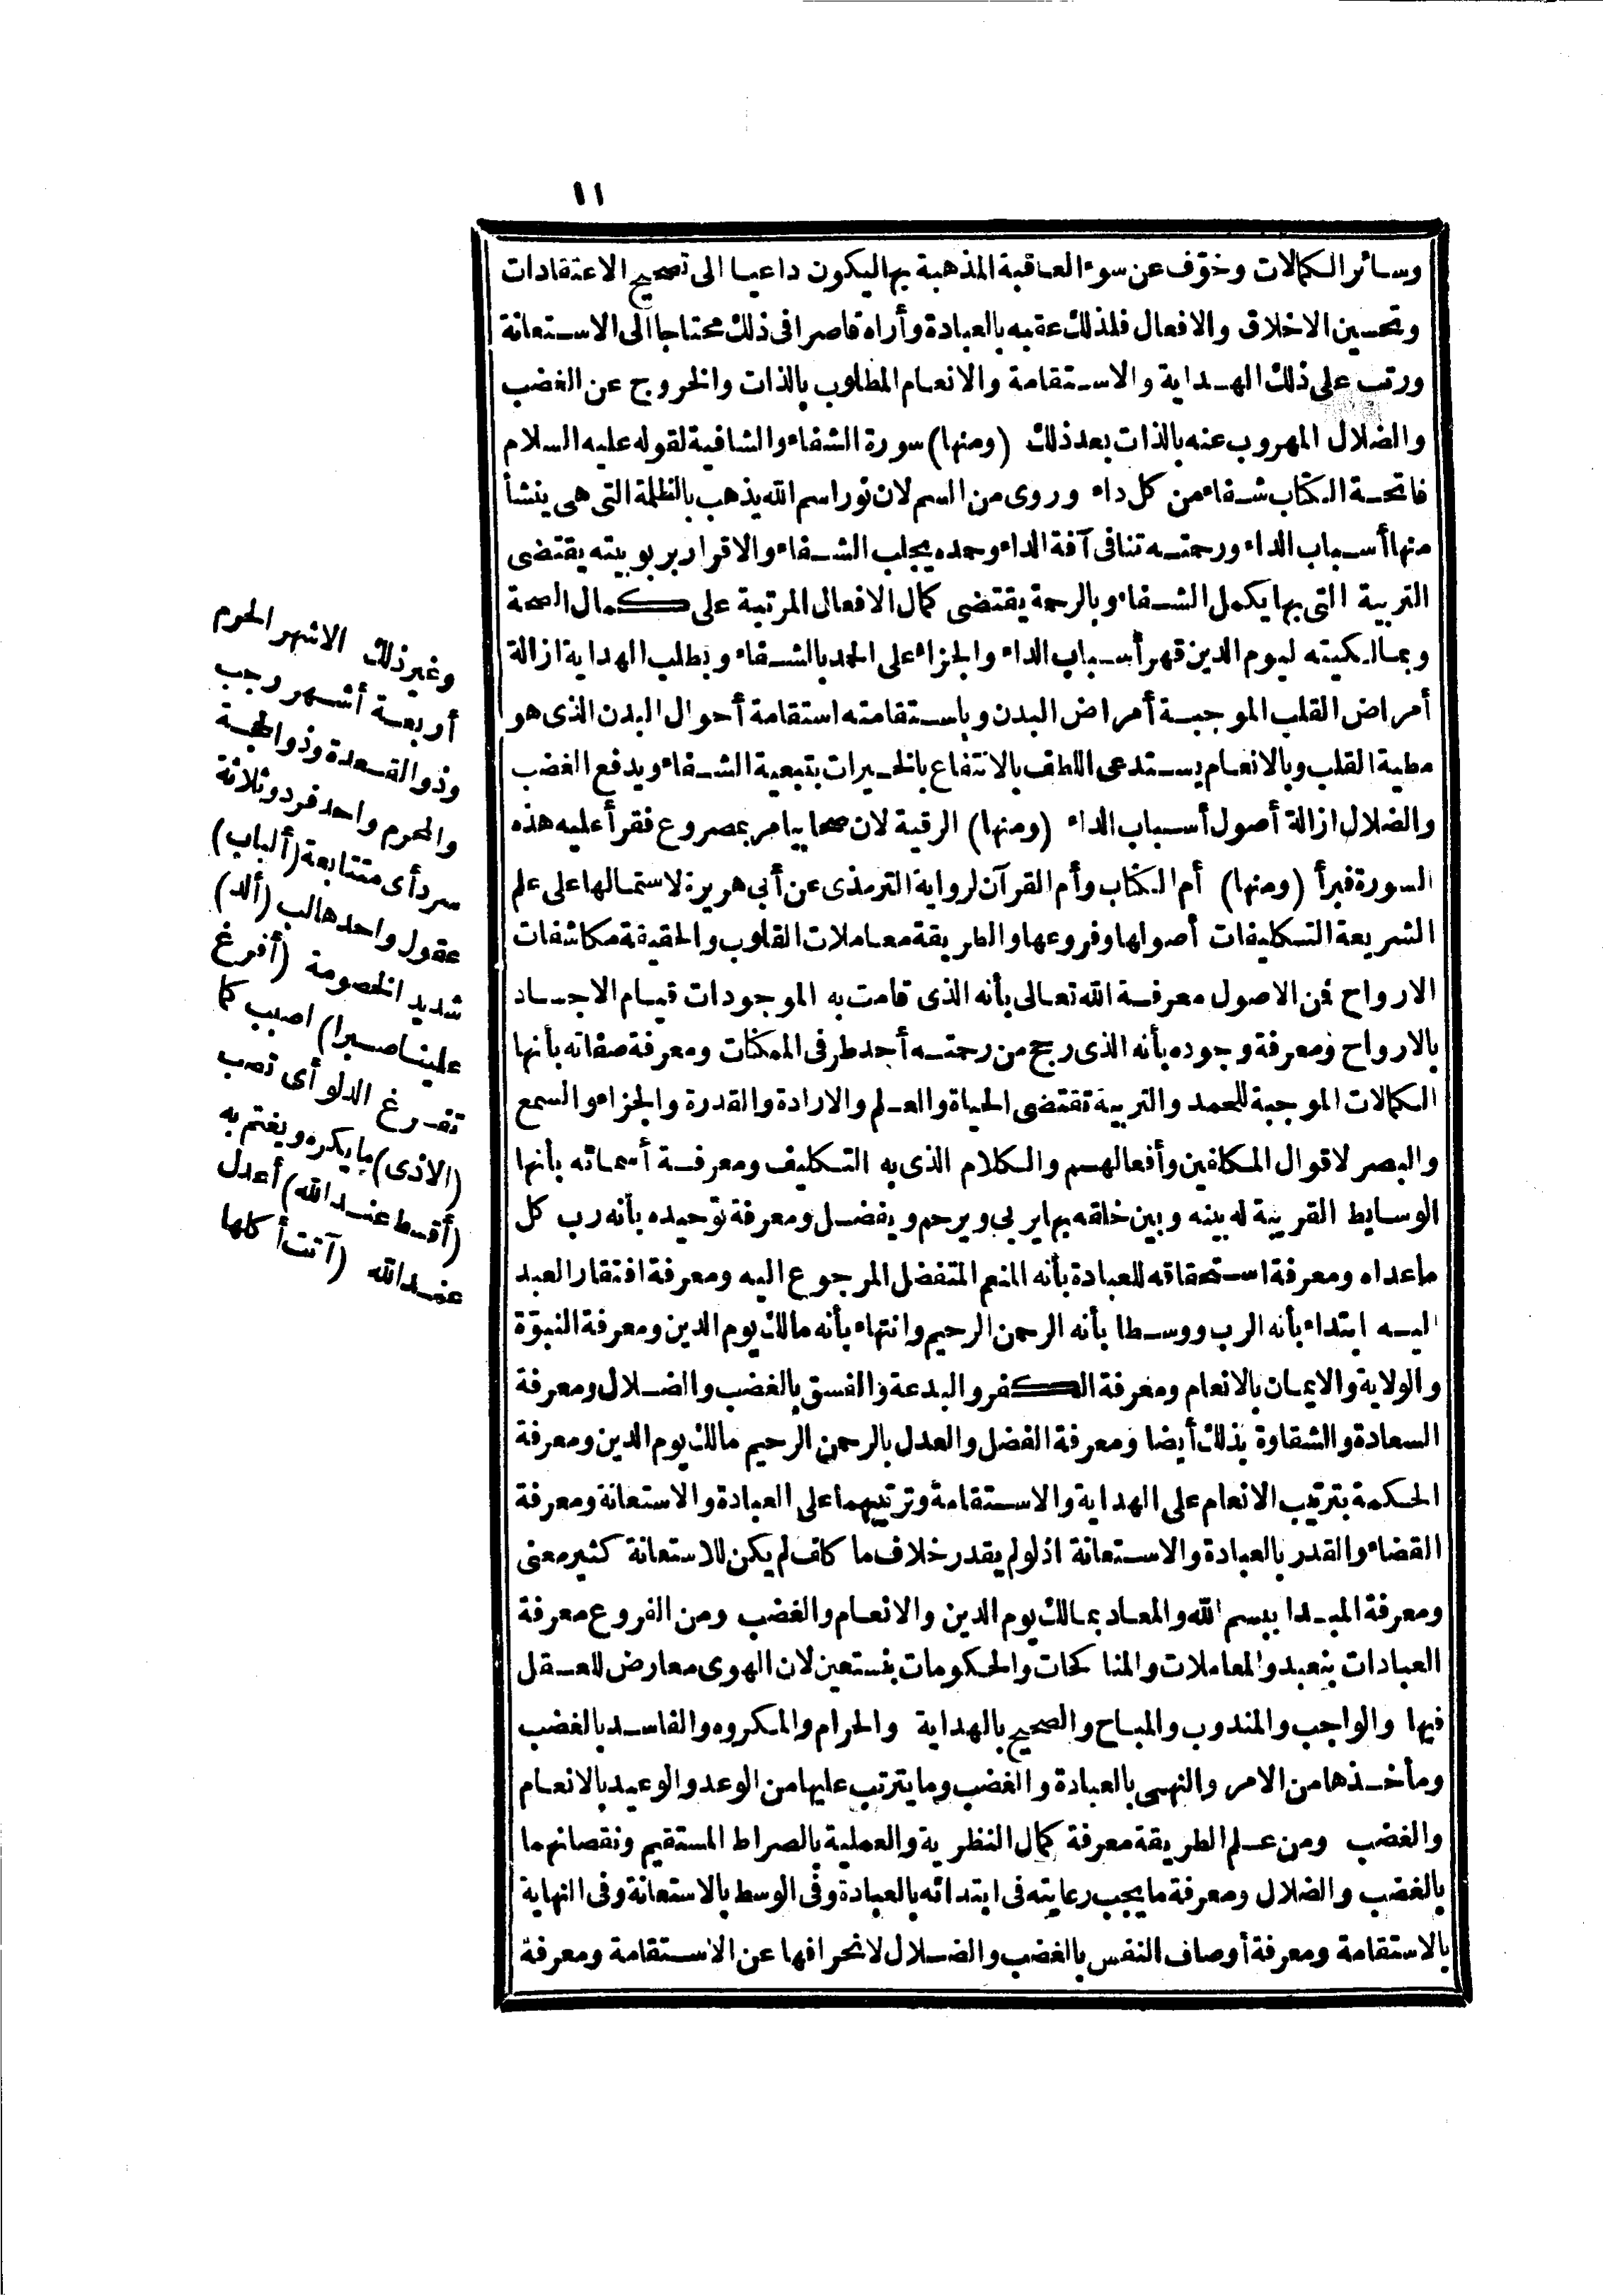 ١١
وسائر الكمالات وخوّف عن سوء العاقبة المذهبة بها ليكون داعيا الى تصحيح الاعتقادات
وتحسين الاخلاق والافعال فلذلك عقبه بالعبادة وأراه قاصرا فى ذلك محتاجا الى الاستعانة
ورتب على ذلك الهداية والاستقامة والانعام المطلوب بالذات والخروج عن الغضب
والضلال المهروب عنه بالذات بعد ذلك (ومنها) سورة الشفاء والشافية لقوله عليه السلام
فاتحة الكتاب شفاء من كل داء وروى من السم لان نور اسم الله يذهب بالظلمة التى هى ينشأ
منها أسباب الداء ورحمته تنافى آفة الداء وحمده يجلب الشفاء والاقرار بربوبيته يقتضى
التربية التى بها يكمل الشفاء وبالرحمة يقتضى كمال الافعال المرتبة على كمال الصحة
وبمالكيته ليوم الدين قهر أسباب الداء والجزاء على الحمد بالشفاء وبطلب الهداية ازالة
أمراض القلب الموجبة أمراض البدن وباستقامته استقامة أحوال البدن الذى هو
مطية القلب وبالانعام يستدعى اللطف بالانتفاع بالخيرات بتبعية الشفاء ويدفع الغضب
والضلال ازالة أصول أسباب الداء (ومنها) الرقية لان صحابيا مر بمصروع فقرأ عليه هذه
السورة فبرأ (ومنها) أم الكتاب وأم القرآن لرواية الترمذى عن أبى هريرة لاشتمالها على علم
الشريعة التكليفات أصولها وفروعها والطريقة معاملات القلوب والحقيقة مكاشفات
الارواح فمن الاصول معرفة الله تعالى بأنه الذى قامت به الموجودات قيام الاجساد
بالارواح ومعرفة وجوده بأنه الذى رجح من رحمته أحد طرفى الممكنات ومعرفة صفاته بأنها
الكمالات الموجبة للحمد والتربية تقتضى الحياة والعلم والارادة والقدرة والجزاء والسمع
والبصر لاقوال المكلفين وأفعالهم والكلام الذى به التكليف ومعرفة أسمائه بأنها
الوسايط القريبة له بينه وبين خلقه بها يربى ويرحم ويفضل ومعرفة توحيده بأنه رب كل
ماعداه ومعرفة استحقاقه للعبادة بأنه المنعم المتفضل المرجوع اليه ومعرفة افتقار العبد
اليه ابتداء بأنه الرب ووسطا بأنه الرحمن الرحيم وانتهاء بأنه مالك يوم الدين ومعرفة النبوّة
والولاية والايمان بالانعام ومعرفة الكفر والبدعة والفسق بالغضب والضلال ومعرفة
السعادة والشقاوة بذلك أيضا ومعرفة الفضل والعدل بالرحمن الرحيم مالك يوم الدين ومعرفة
الحكمة بترتيب الانعام على الهداية والاستقامة وترتيبهما على العبادة والاستعانة ومعرفة
القضاء والقدر بالعبادة والاستعانة اذ لو لم يقدر خلاف ما كلف لم يكن للاستعانة كثير معنى
ومعرفة المبدا ببسم الله والمعاد بمالك يوم الدين والانعام والغضب ومن الفروع معرفة
العبادات بنعبد والمعاملات والمناكحات والحكومات بنستعين لان الهوى معارض للعقل
فيها والواجب والمندوب والمباح والصحيح بالهداية والحرام والمكروه والفاسد بالغضب
ومأخذها من الامر والنهى بالعبادة والغضب وما يترتب عليها من الوعد والوعيد بالانعام
والغضب ومن علم الطريقة معرفة كمال النظرية والعملية بالصراط المستقيم ونقصانهما
بالغضب والضلال ومعرفة ما يجب رعايته فى ابتدائه بالعبادة وفى الوسط بالاستعانة وفى النهاية
بالاستقامة ومعرفة أوصاف النفس بالغضب والضلال لانحرافها عن الاستقامة ومعرفة
وغير ذلك الاشهر الحرم
أربعة أشهر رجب
وذو القعدة وذو الحجة
والمحرم واحد فرد وثلاثة
سرد أى متتابعة (ألباب)
عقول واحدها لب (ألد)
شديد الخصومة (أفرغ
علينا صبرا) اصبب كما
تفرغ الدلو أى تصب
(الاذى) ما يكره ويغتم به
(أقسط عند الله) أعدل
عند الله (آتت أكلها